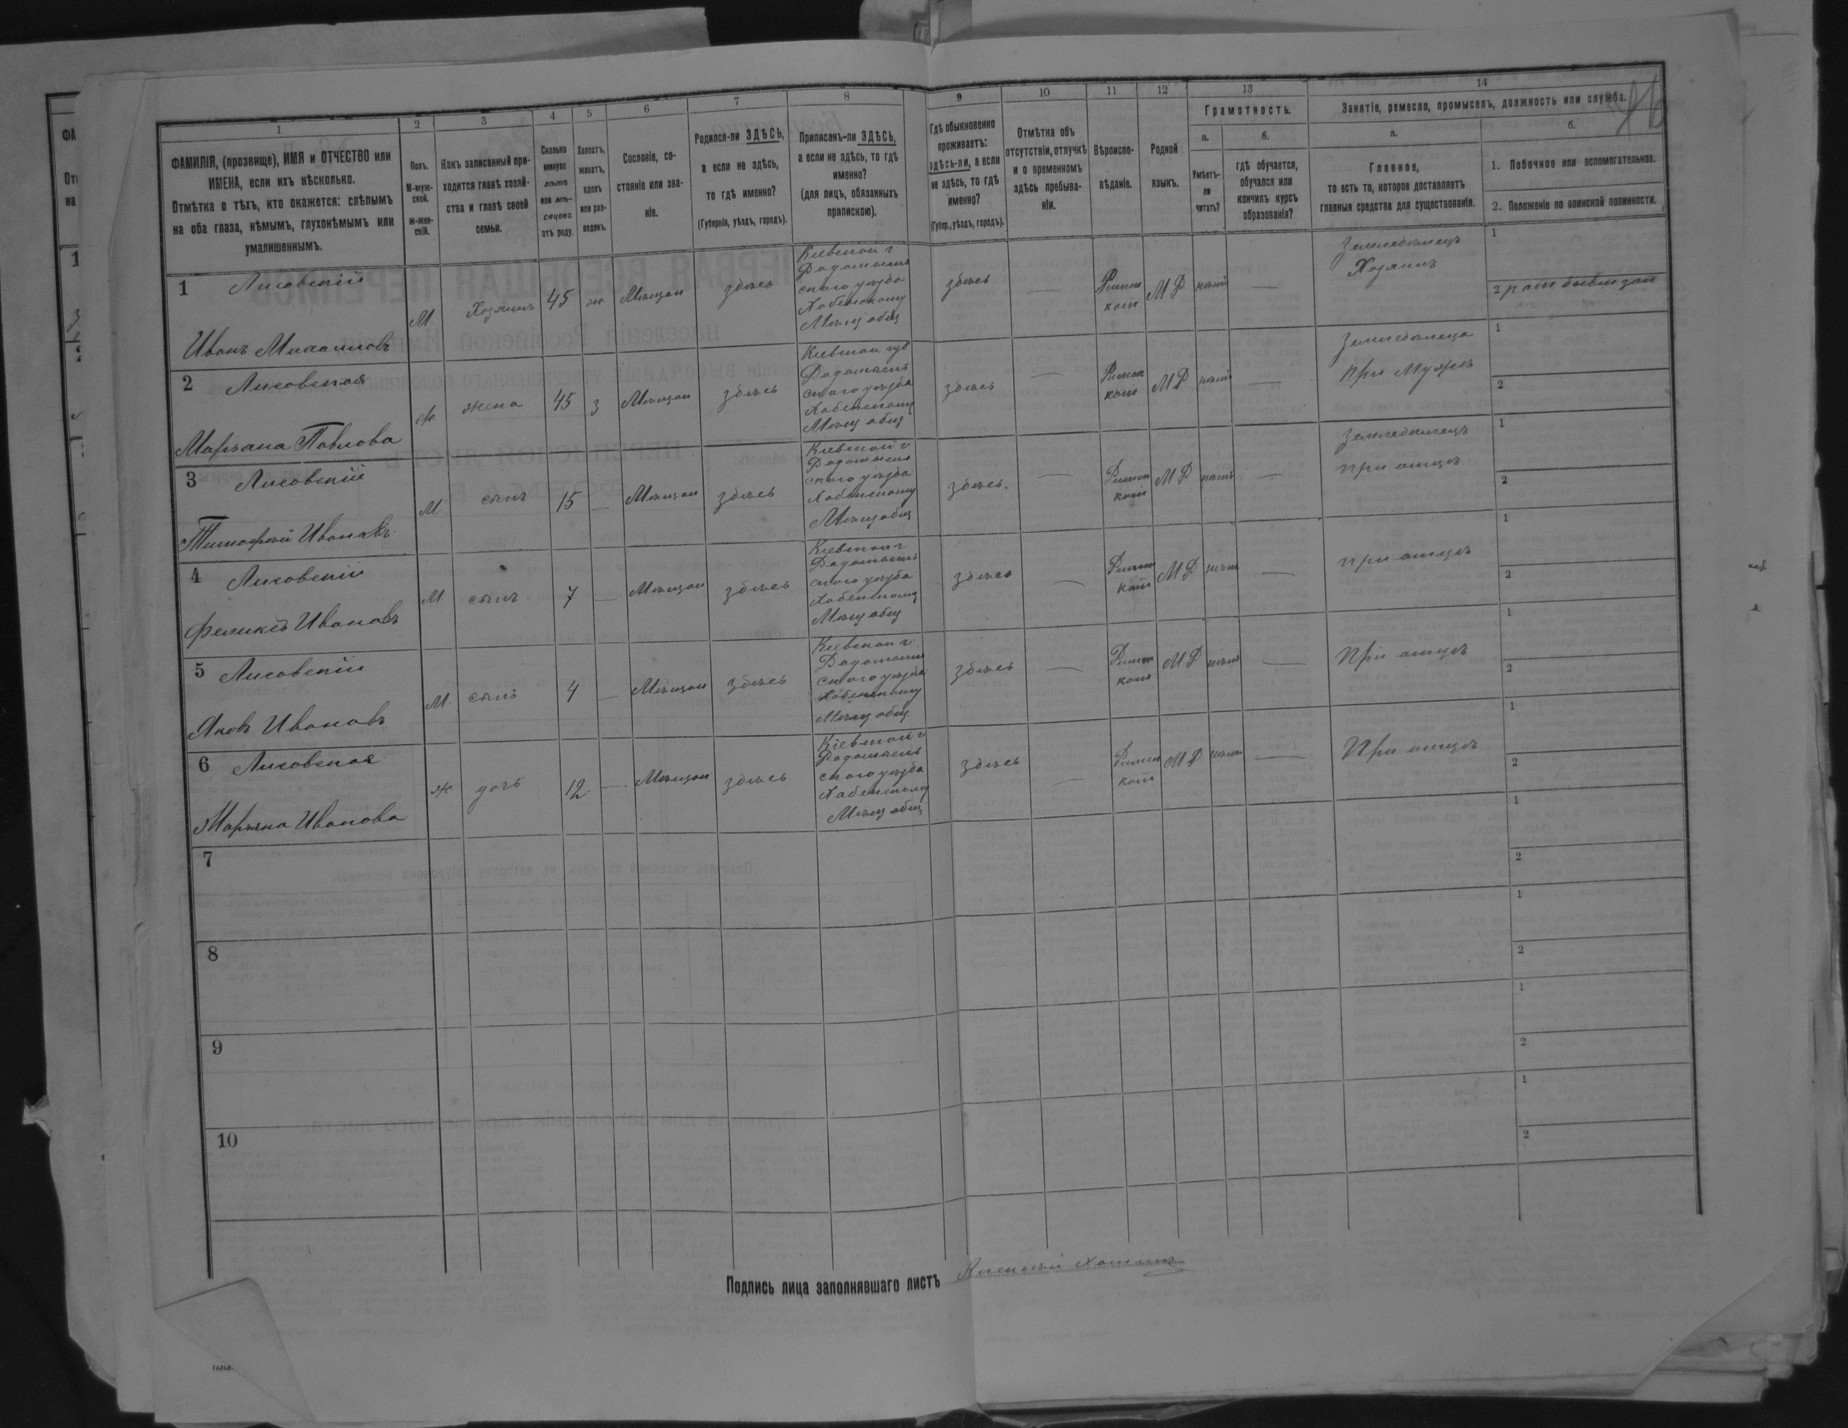 1
2
3
4
5
6
7
8
9
10
11
12
13
14
ФАМИЛІЯ, (прозвище), ИМЯ и ОТЧЕСТВО или
ИМЕНА, если ихъ нѣсколько.
Отмѣтка о тѣхъ, кто окажется: слѣпымъ
на оба глаза, нѣмымъ, глухонѣмымъ или
умалишеннымъ.
Полъ.
М-муж-
ской.
ж-жен-
скій.
Какъ записанный при-
ходится главѣ хозяй-
ства и главѣ своей
семьи.
Сколько
минуло
лѣтъ
или мѣ-
сяцевъ
отъ роду.
Холостъ,
женатъ,
вдовъ
или раз-
веденъ.
Сословіе, со-
стояніе или зва-
ніе.
Родился-ли ЗДѢСЬ,
а если не здѣсь,
то гдѣ именно?
(Губернія, уѣздъ, городъ).
Приписанъ-ли ЗДѢСЬ,
а если не здѣсь, то гдѣ
именно?
(для лицъ, обязанныхъ
припискою).
Гдѣ обыкновенно
проживаетъ:
здѣсь-ли, а если
не здѣсь, то гдѣ
именно?
(Губер., уѣздъ, городъ).
Отмѣтка объ
отсутствіи, отлучкѣ
и о временномъ
здѣсь пребыва-
ніи.
Вѣроиспо-
вѣданіе.
Родной
языкъ.
Грамотность.
а.
б.
Умѣетъ-
ли
читать?
гдѣ обучается,
обучался или
кончилъ курсъ
образованія?
Занятіе, ремесло, промыселъ, должность или служба.
а.
б.
Главное,
то есть то, которое доставляетъ
главныя средства для существованія.
1. Побочное или вспомогательное.
2. Положеніе по воинской повинности.
1 Лисовскій
Иванъ
М
Хозяинъ
45
Мѣщан
здѣсь
Кіевской г
Радомысль
скаго уѣзда
Хабенскому
Мѣщ общ
здѣсь
—
Римск
кат
—
Земледѣлецъ
Хозяинъ
1
2
2 Лисовская
Марьяна Павлова
ж
жена
45
з
Мѣщан
здѣсь
Кіевской губ
Радомысль
скаго уѣзда
Хабенскому
Мѣщ общ
здѣсь
—
Римск
кат
—
при мужѣ
1
2
3 Лисовскій
Тимофей Ивановъ
М
сынъ
15
—
Мѣщан
здѣсь
Кіевской г
Радомысль
скаго уѣзда
Хабенскому
Мѣщ общ
здѣсь.
—
Римск
кат
—
Земледѣлецъ
при отцѣ
1
2
4 Лисовскій
Феликсъ Ивановъ
М
сынъ
7
—
Мѣщан
здѣсь
Кіевской г
Радомысль
скаго уѣзда
Хабенскому
Мѣщ общ
здѣсь
—
Римск
кат
—
при отцѣ
1
2
5 Лисовскій
Яковъ Ивановъ
М
сынъ
4
—
Мѣщан
здѣсь
Кіевской г
Радомысль
скаго уѣзда
Хабенскому
Мѣщ общ
здѣсь
—
Римск
кат
—
При отцѣ
1
2
6 Лисовская
Марьяна Иванова
ж
дочь
12
—
Мѣщан
здѣсь
Кіевской г
Радомысль
скаго уѣзда
Хабенскому
Мѣщ общ
здѣсь
—
Римск
кат
—
При отцѣ
1
2
7
1
2
8
1
2
9
1
2
10
1
2
Подпись лица заполнявшаго листъ